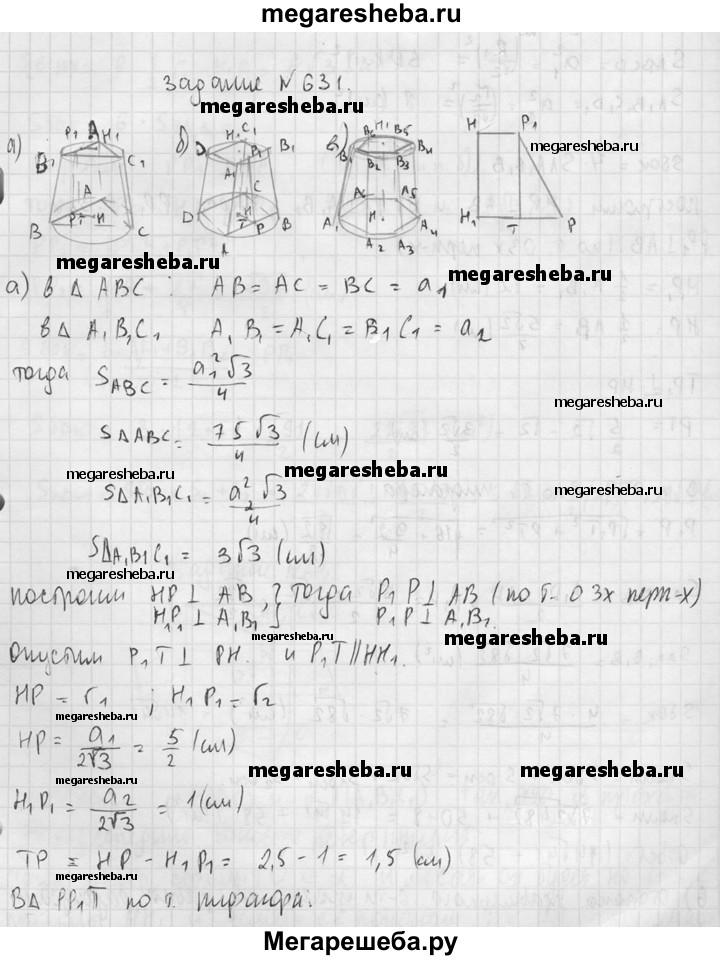 megaresheba.ru
задание №631.
megaresheba.ru
а) P1 A H1 B C1 A B P H C
б) H C1 P1 B1 A1 C D P B A
в) B6 B5 B4 B2 B3 A6 A5 A1 H A4 A2 A3
H P1 H1 T P
megaresheba.ru
megaresheba.ru
megaresheba.ru
а) в Δ ABC : AB = AC = BC = a1
megaresheba.ru
в Δ A1B1C1 A1B1 = A1C1 = B1C1 = a2
тогда S ABC = a1²√3 / 4
megaresheba.ru
SΔABC = 75√3 / 4 (см)
megaresheba.ru
megaresheba.ru
megaresheba.ru
SΔA1B1C1 = a2²√3 / 4
SΔA1B1C1 = 3√3 (см)
megaresheba.ru
построим HP ⊥ AB, } тогда P1P ⊥ AB (по т. о 3х перп-х)
H1P1 ⊥ A1B1 } P1P ⊥ A1B1.
megaresheba.ru
megaresheba.ru
Опустим P1T ⊥ PH. и P1T || HH1.
HP = r1 ; H1P1 = r2
megaresheba.ru
HP = a1 / 2√3 = 5/2 (см)
megaresheba.ru
megaresheba.ru
megaresheba.ru
H1P1 = a2 / 2√3 = 1 (см)
megaresheba.ru
TP = HP - H1P1 = 2,5 - 1 = 1,5 (см)
megaresheba.ru
В Δ PP1T по т. пифагора:
Мегарешеба.ру